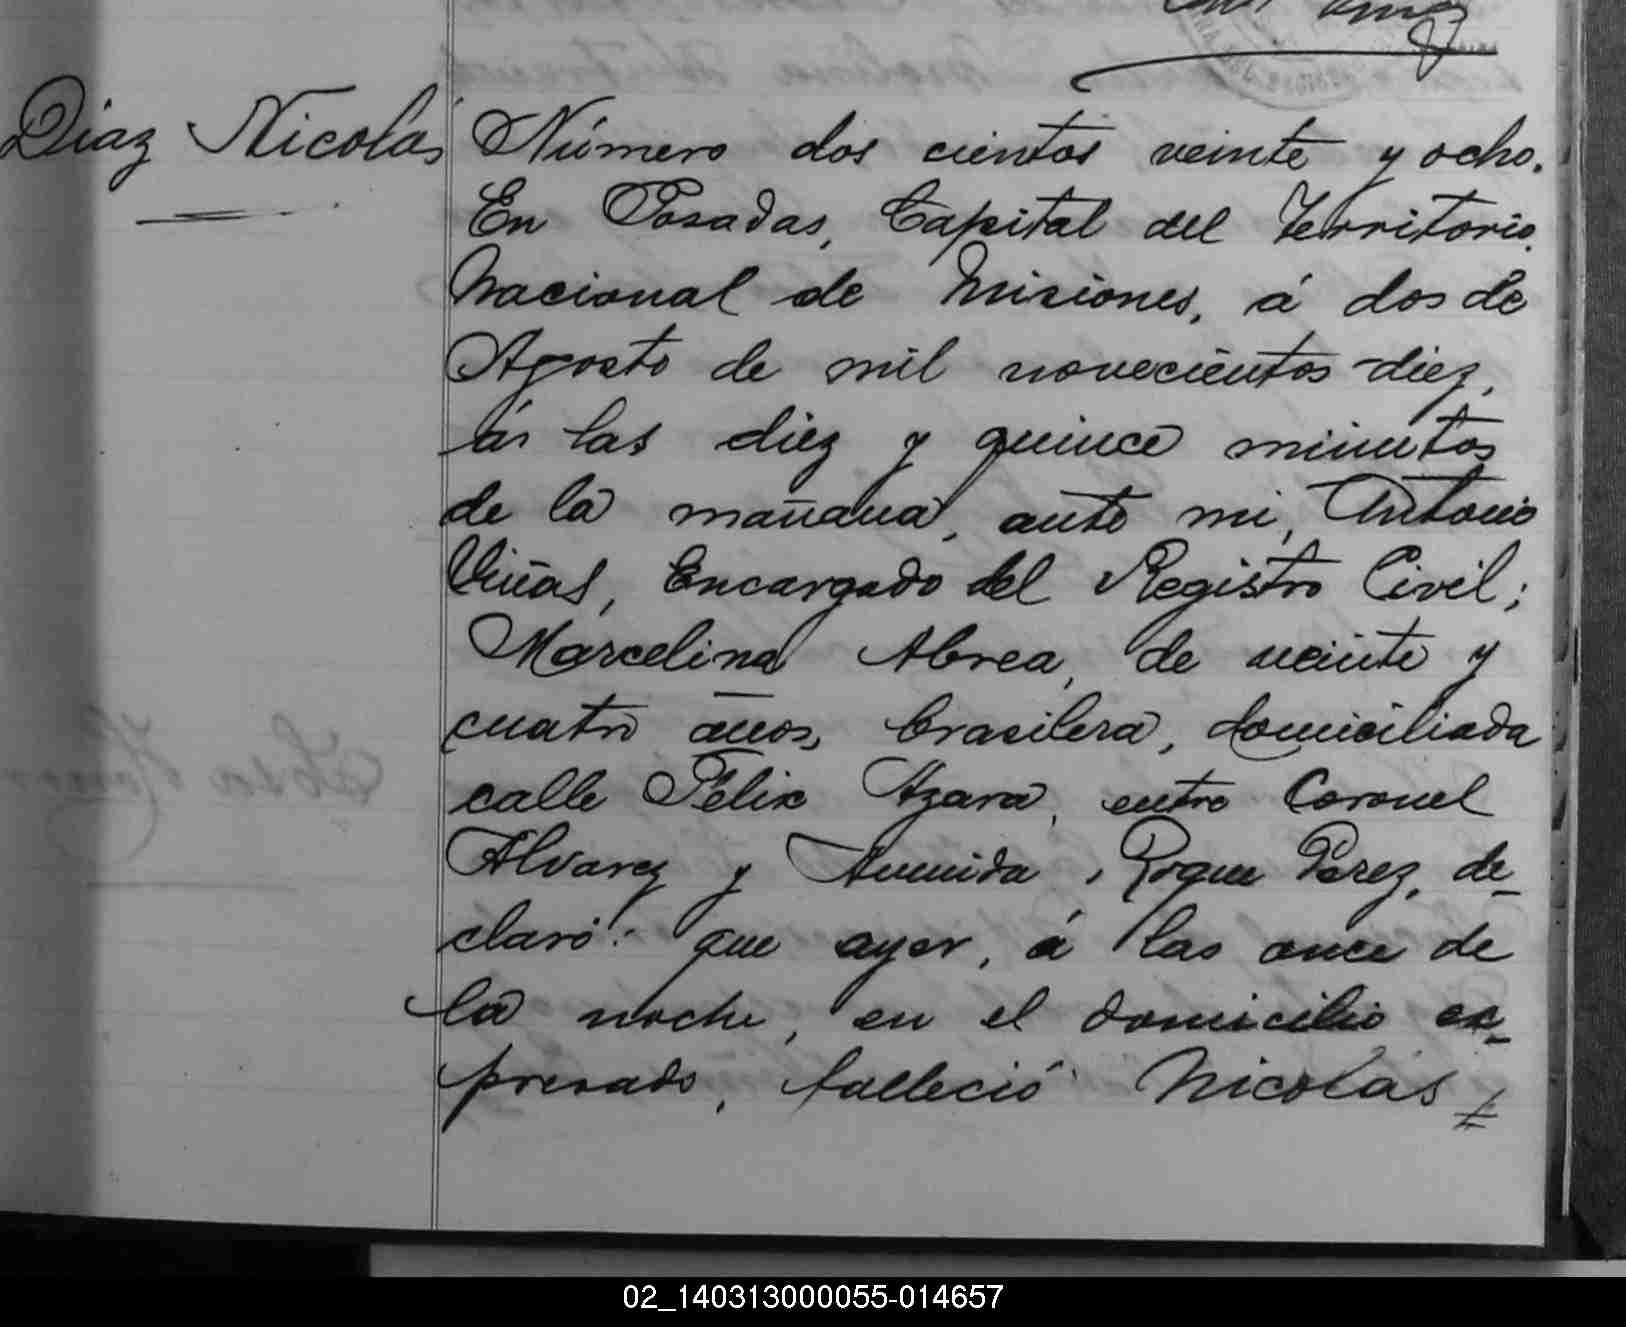 Diaz Nicolás
Número dos cientos veinte y ocho.
En Posadas, Capital del Territorio
Nacional de Misiones, á dos de
Agosto de mil novecientos diez,
á las diez y quince minutos
de la mañana, ante mi, Antonio
Viñas, Encargado del Registro Civil;
Marcelina Abrea, de veinte y
cuatro años, brasilera, domiciliada
calle Félix Azara, entre Coronel
Alvarez y Avenida, Roque Perez, de-
claró: que ayer, á las once de
la noche, en el domicilio ex-
presado, falleció Nicolás
02_140313000055-014657